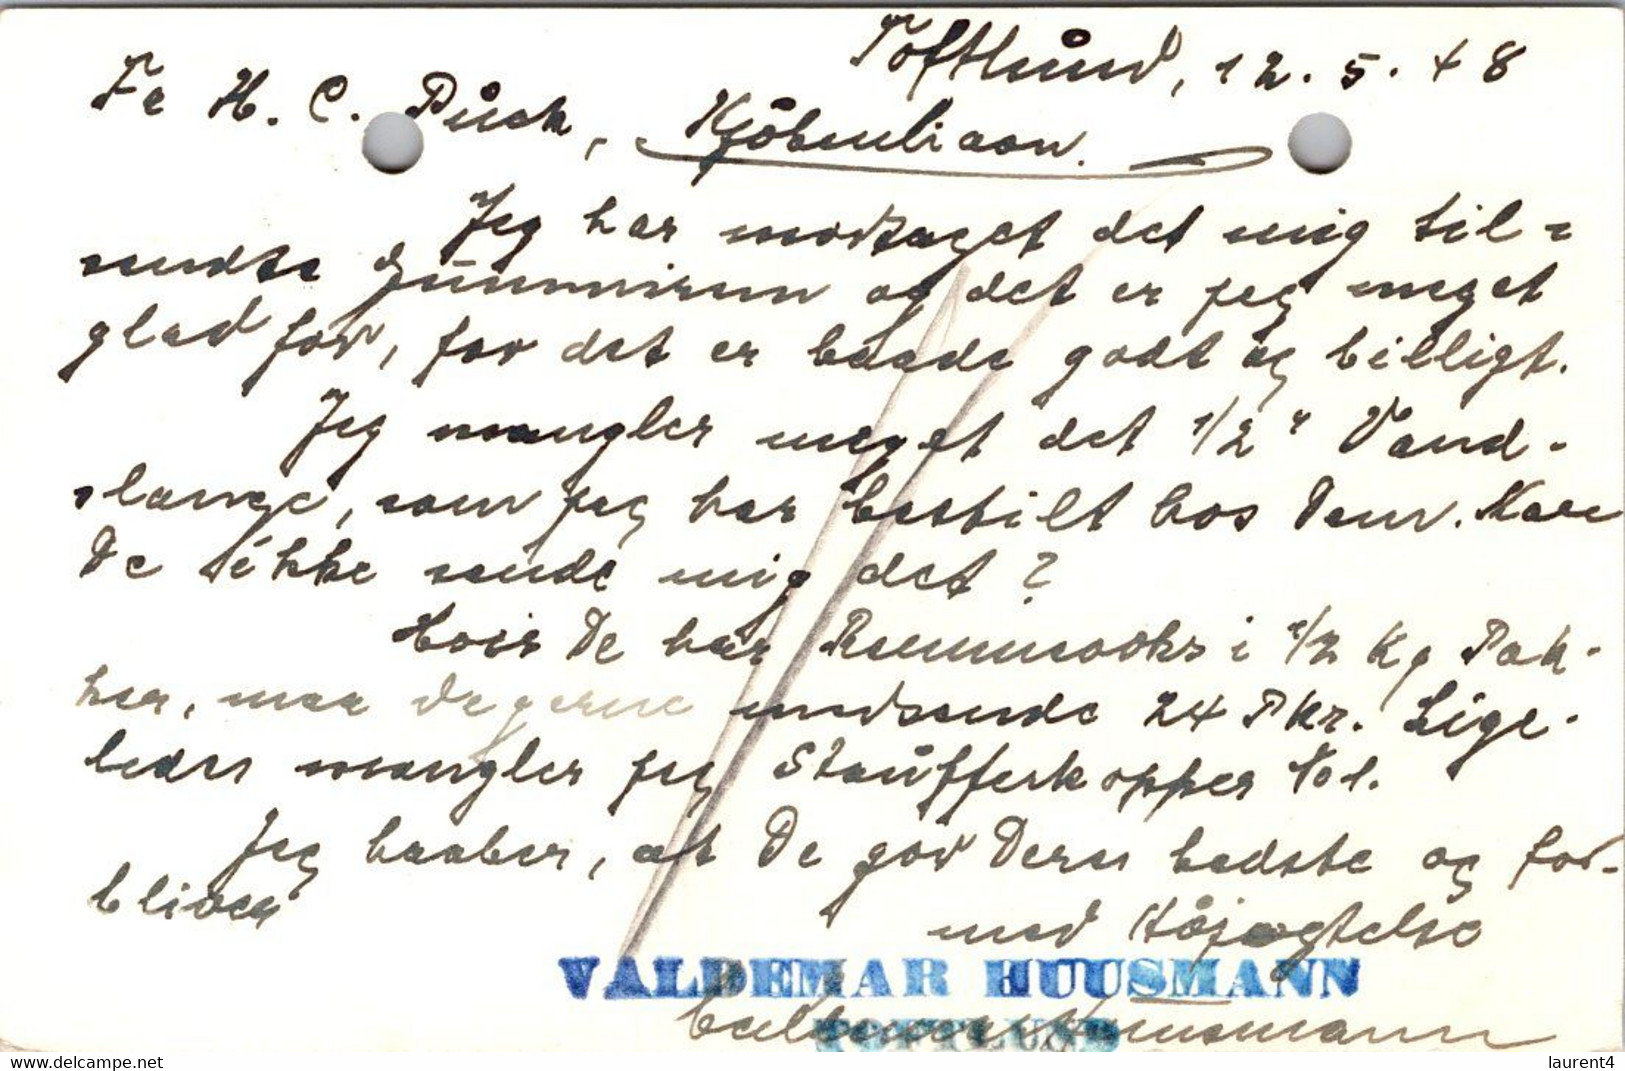 Toftlund, 12.5.48
Fa H. C. Puch, Kjöbenhavn.
Jeg har modtaget det mig til-
sendte Gummirem og det er jeg meget
glad for, for det er baade godt og billigt.
Jeg mangler meget det 1/2" Vand-
slange, som jeg har bestilt hos Dem. Kan
De ikke sende mig det?
Hvis De har Remmevoks i 1/2 Kg Pak-
ker, maa De gerne medsende 24 Pkr. Lige-
ledes mangler jeg Staufferkopper
Jeg haaber, at De gør Deres bedste og for-
bliver
med Højagtelse
VALDEMAR HUUSMANN
TOFTLUND
Valdemar Huusmann
www.delcampe.net
laurent4